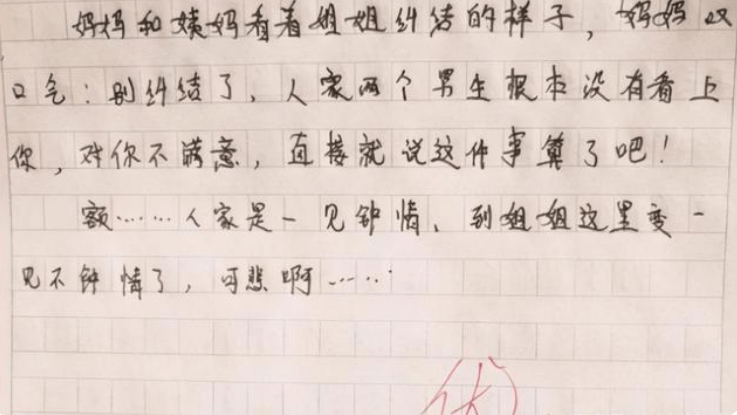 妈妈和姨妈看着姐姐纠结的样子，妈妈叹
口气：别纠结了，人家两个男生根本没有看上
你，对你不满意，直接就说这件事算了吧！
额……人家是一见钟情，到姐姐这里变一
见不钟情了，可悲啊……
优